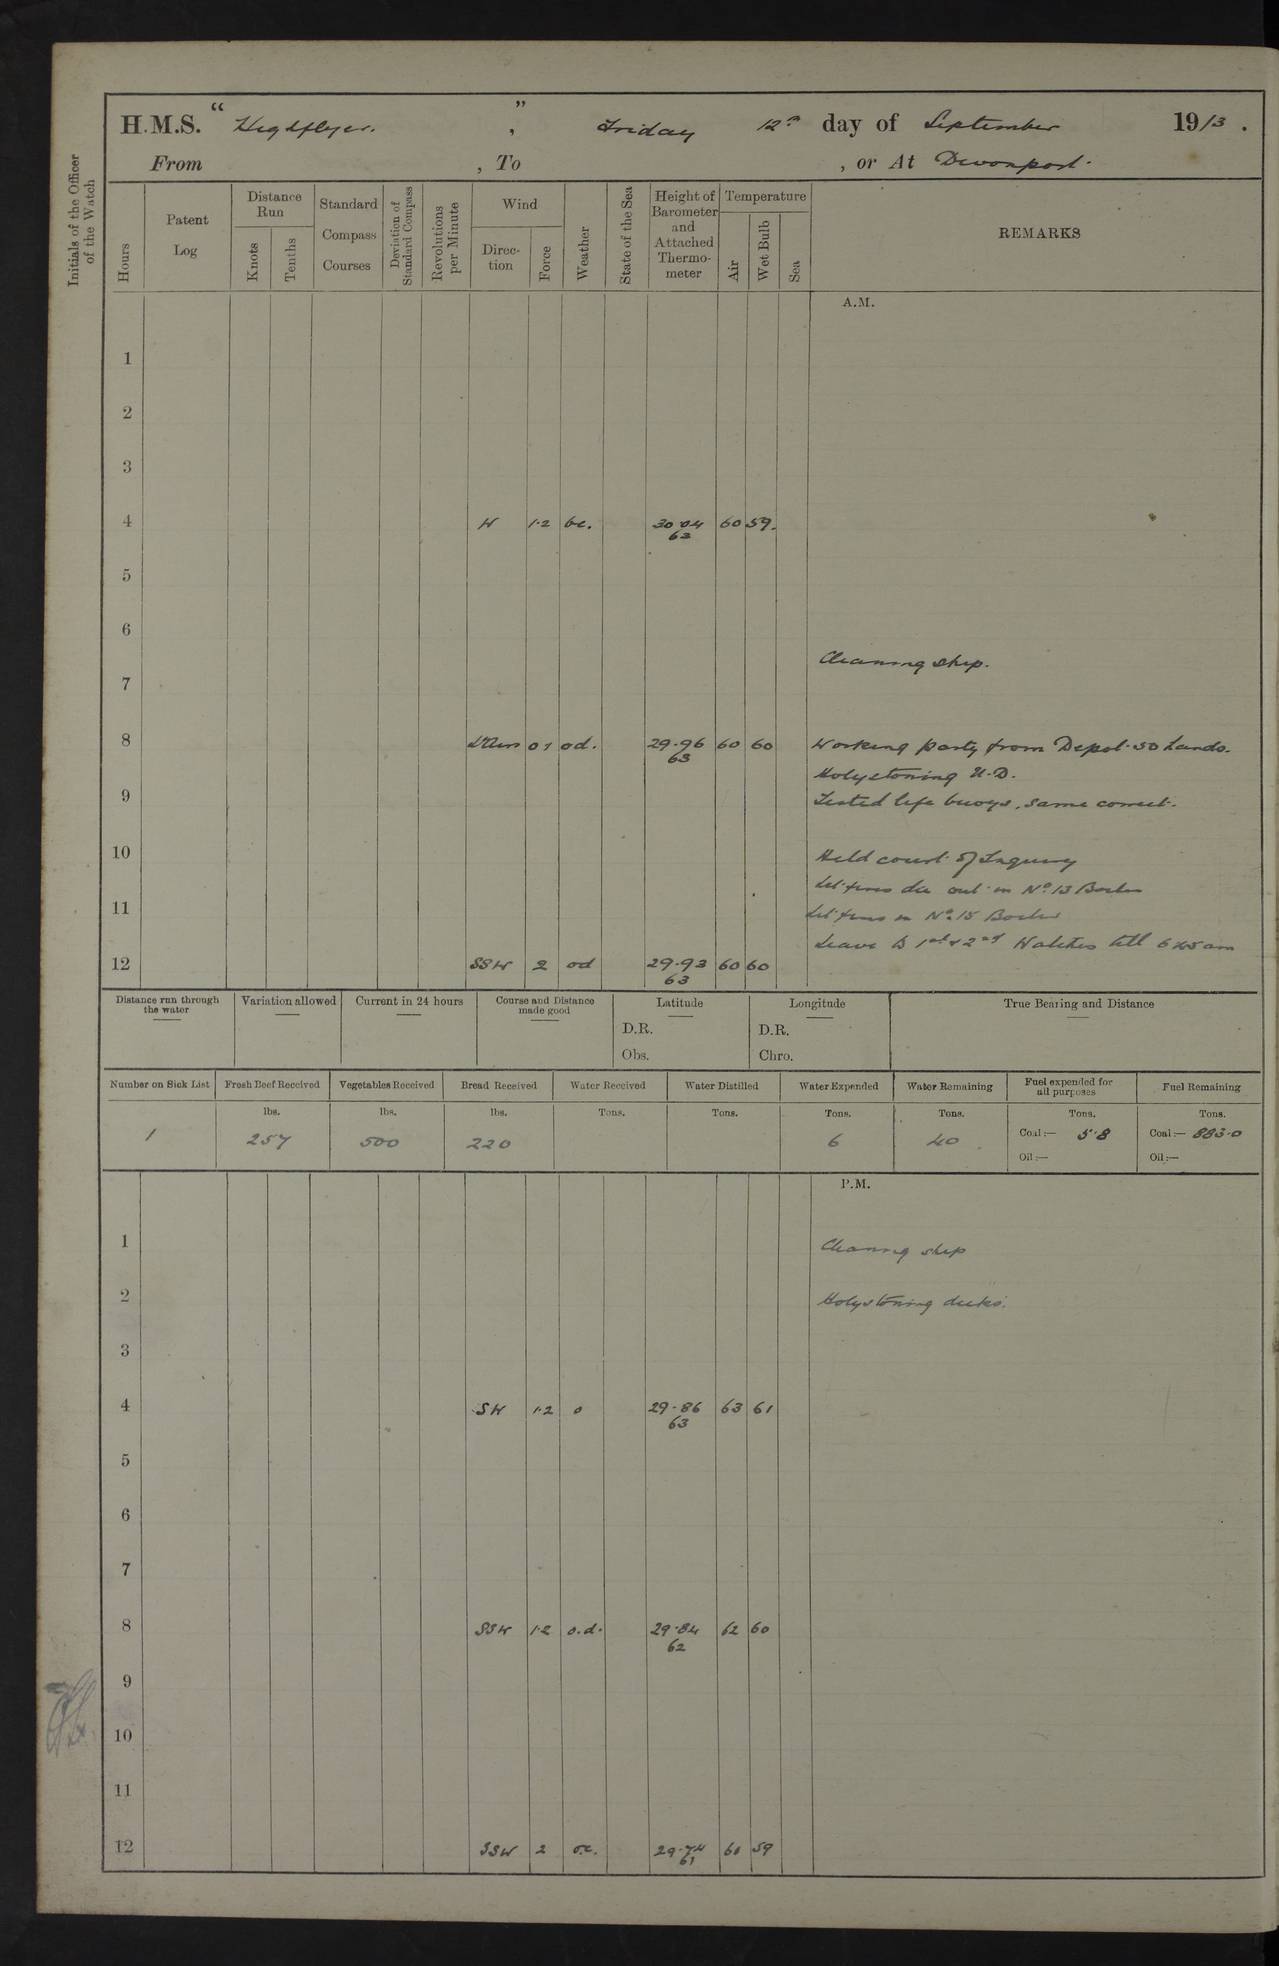 H.M.S. “ Highflyer. ” , Friday 12th day of September 1913 .
From , To , or At Devonport.
Initials of the Officer of the Watch
Hours
Patent Log
Distance Run
Knots
Tenths
Standard Compass Courses
Deviation of Standard Compass
Revolutions per Minute
Wind
Direction
Force
Weather
State of the Sea
Height of Barometer and Attached Thermometer
Temperature
Air
Wet Bulb
Sea
REMARKS
A.M.
1
2
3
4 W 1.2 bc. 30.04 60 59.
63
5
6
Cleaning ship.
7
8 Lt Airs 0 1 od. 29.96 60 60 Working party from Depot. 50 hands.
63
Holystoning U.D.
9 Tested life buoys, same correct.
10 Held court of Inquiry
Let fires die out in No. 13 Boiler
11 Lit fires in No. 15 Boiler
Leave to 1st & 2nd Watches till 6 45 am
12 SSW 2 od 29.93 60 60
63
Distance run through the water
Variation allowed
Current in 24 hours
Course and Distance made good
Latitude
D.R.
Obs.
Longitude
D.R.
Chro.
True Bearing and Distance
Number on Sick List Fresh Beef Received Vegetables Received Bread Received Water Received Water Distilled Water Expended Water Remaining Fuel expended for all purposes Fuel Remaining
lbs. lbs. lbs. Tons. Tons. Tons. Tons. Tons. Tons.
1 257 500 220 6 40 Coal:— 5.8 Coal:— 883.0
Oil:— Oil:—
P.M.
1 Cleaning ship
2 Holystoning decks.
3
4 SW 1.2 o 29.86 63 61
63
5
6
7
8 SSW 1.2 o.d. 29.84 62 60
62
9
10
11
12 SSW 2 o.c. 29.74 61 59
61